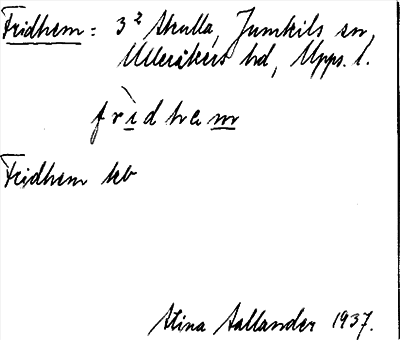 Fridhem: 3² Skulla, Jumkils sn,
Ulleråkers hd, Upps. l.
fridhem
Fridhem kb
Stina Sallander 1937.